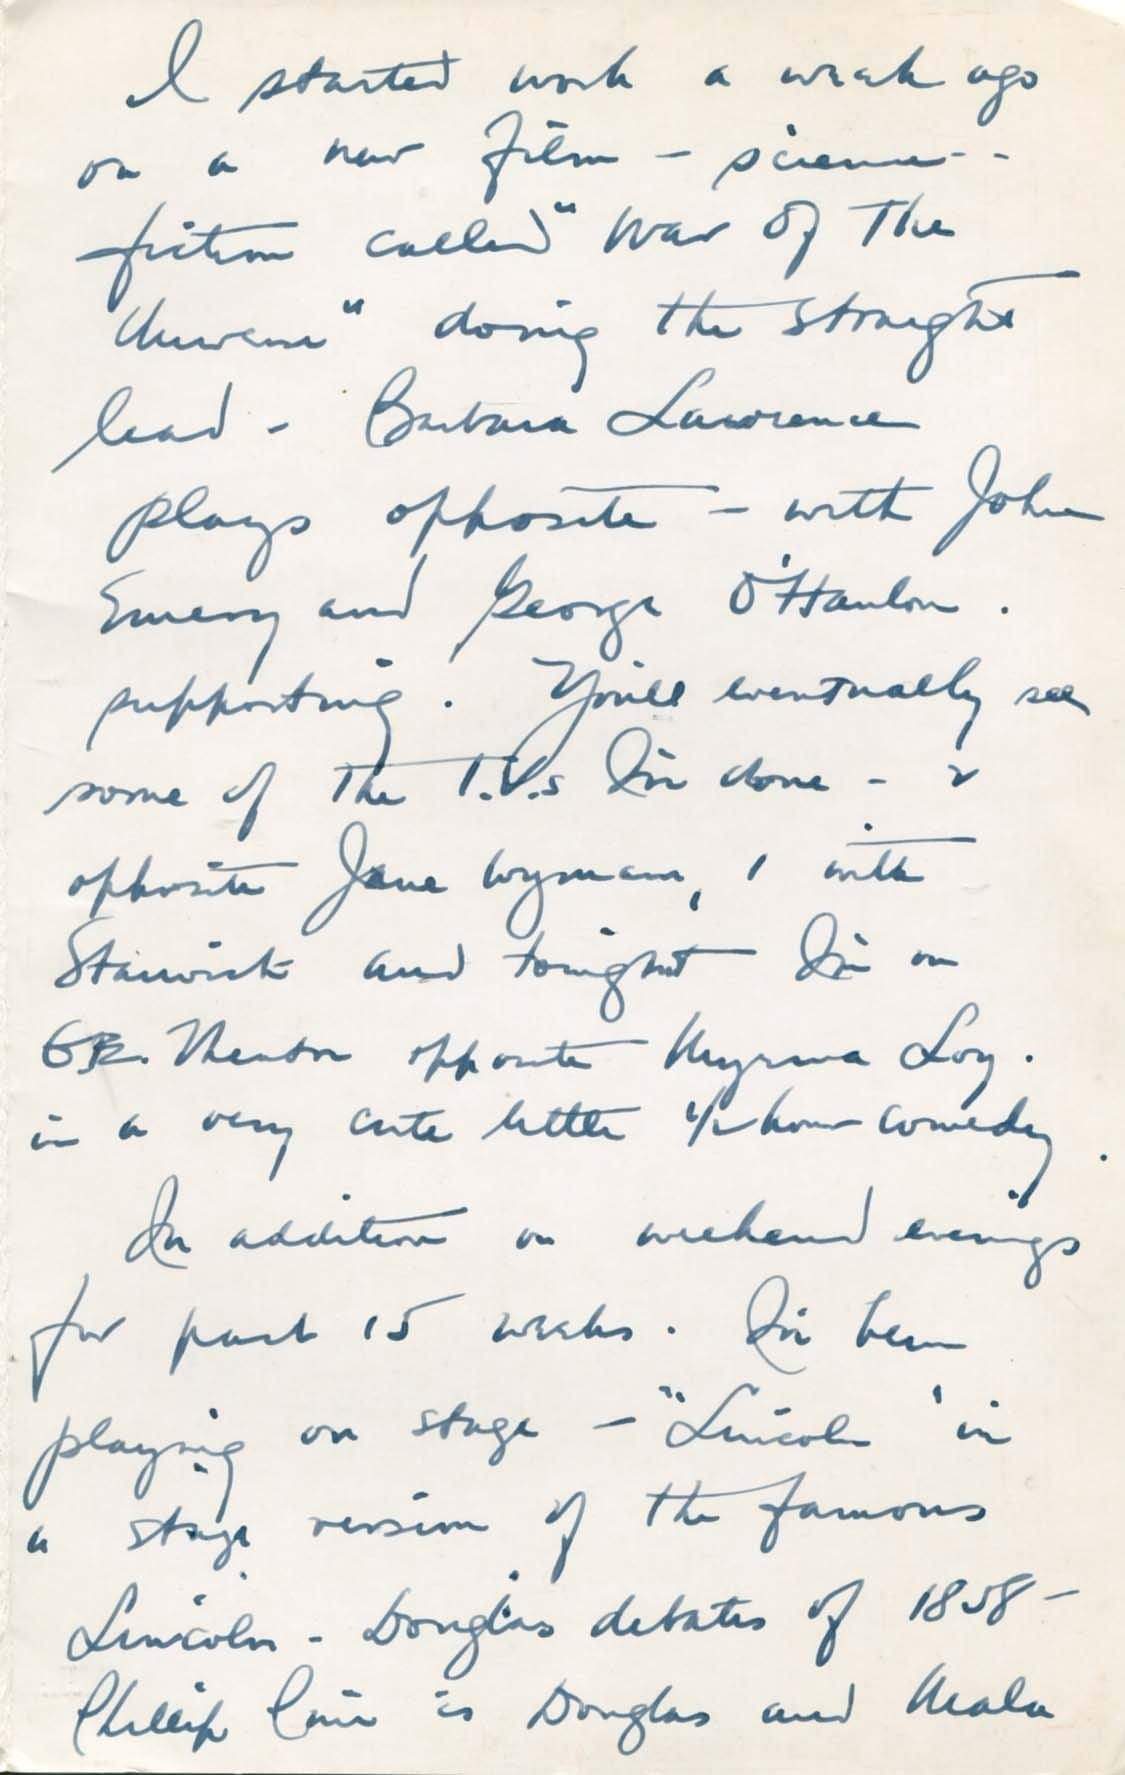 I started work a week ago
on a new film - science--
fiction called "War Of The
Universe" doing the straight
lead - Barbara Lawrence
plays opposite - with John
Emery and George O'Hanlon.
supporting. You'll eventually see
some of the T.V.s I've done - 2
opposite Jane Wyman, 1 with
Stanwick and tonight I'm on
G.E. Theater opposite Myrna Loy.
in a very cute little 1/2 hour comedy.
In addition on weekend evenings
for past 15 weeks. I've been
playing on stage - "Lincoln" in
a stage version of the famous
Lincoln - Douglas debates of 1858 -
Phillip is Douglas and Mala